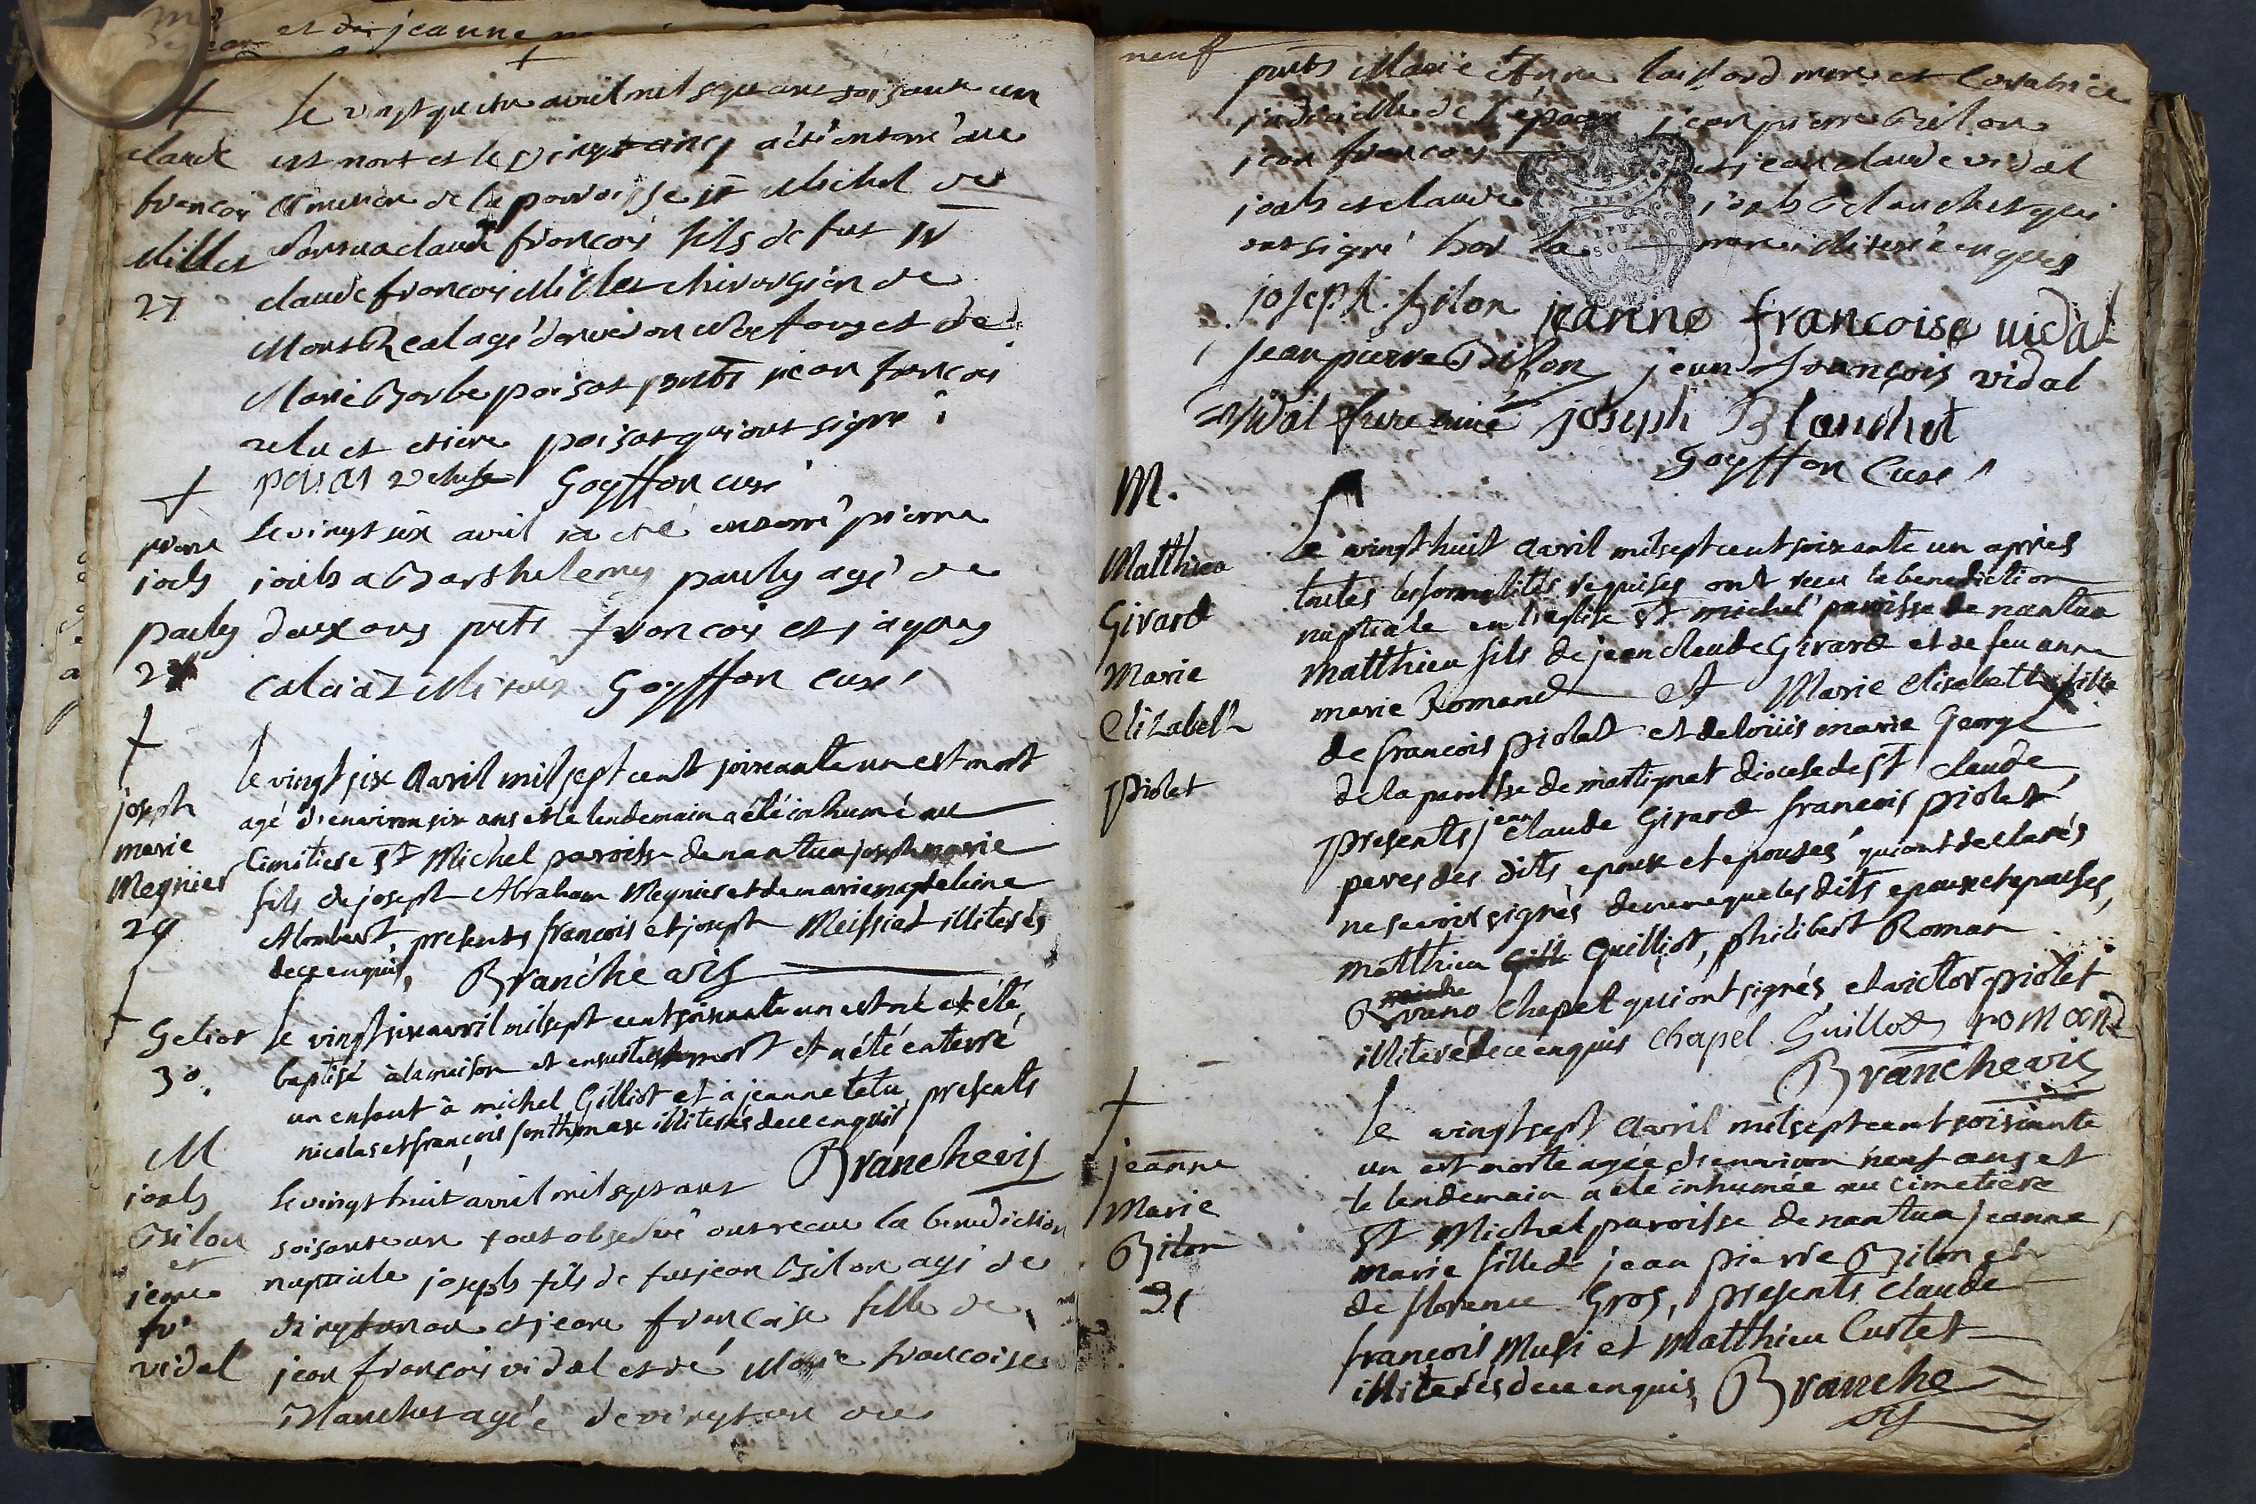 et de jeanne
+
+
le vingt quatre avril mil sept cent soisante un
claude
francois
Millet
27
est mort et le vingt cinq a été enterré au
cimetiere de la parroisse st Michel de
nantua claude francois fils de fut sr
claude francois Millet chirurgien de
Mont Real agé d'environ et de
Marie Barbe poisat pnts jean francois
velu et poisat qui ont signé
poisat Goyffon curé
+
pierre
josh
pauly
le vingt six avril a été enterré pierre
josh a Barthelemy pauly agé de
deux ans pnts francois et jaques
calciat illiterés Goyffon curé
+
joseph
marie
Megnier
29
le vingt six avril mil sept cent soixante un est mort
agé d'environ six ans et le lendemain a été inhumé au
Cimitiere St Michel paroisse de nantua joseph marie
fils de joseph Abraham Megnier et de marie magdeleine
Alombert, presents francois et joseph Meissiat illiterés
de ce enquis, Branche vic
+
Geliot
30.
le vingt six avril mil sept cent soixante un est né et été
baptisé à la maison et ensuite est mort et a été enterré
un enfant à michel Gilliot et à jeanne tetu, presents
nicolas et françois illiterés de ce enquis
Branche vic
M
josh
Bilon
et
jeane
fr.
vidal
le vingt huit avril mil sept cent
soisante un tout observé ont recue la benediction
nuptiale joseph fils de fut jean Bilon agé de
vingt et jeane francoise fille de
jean francois vidal et de Marie francoise
Blanchet agée de vingt un ans
neuf
pnts Marie Anne mere et Curatrice
judicielle de l'epoux jean pierre Bilon
jean francois et jean claude vidal
josh et claude josh Blanchet qui
ont signé hor la mere illiterée enquis
joseph. bilon jeanne francoise vidal
jean pierre Billon jean françois vidal
vidal frere ainé joseph Blanchet
Goyffon Curé
M.
Matthieu
Girard
Marie
Elizabeth
Piolet
Le vingt huit avril mil sept cent soixante un aprés
toutes les formalités requises ont recu la benediction
nuptiale en l'eglise St. michel paroisse de nantua
matthieu fils de jean claude Girard et de feu anne
marie Romand et Marie elisabeth fille
de francois piolet et de loüis marie Georg
de la paroisse de martignat diocese de St claude,
presents jean claude Girard francois piolet
peres des dits epoux et epousés qui ont declarés
ne scavoir signés de meme que les dits epoux et epouses,
matthieu Guilliot, philibert Roman
Bruno chapel qui ont signés et victor piolet
illiteré de ce enquis chapel Guillot romand
Branche vic
+
jeanne
Marie
Bilon
31
le vingt sept avril mil sept cent soixante
un est morte agée d'environ neuf ans et
le lendemain a eté inhumée au cimetiere
St Michel paroisse de nantua jeanne
marie fille de jean pierre Bilon et
de florence Gros, presents claude
françois Musi et Matthieu Curtet
illiterés de ce enquis, Branche
vic